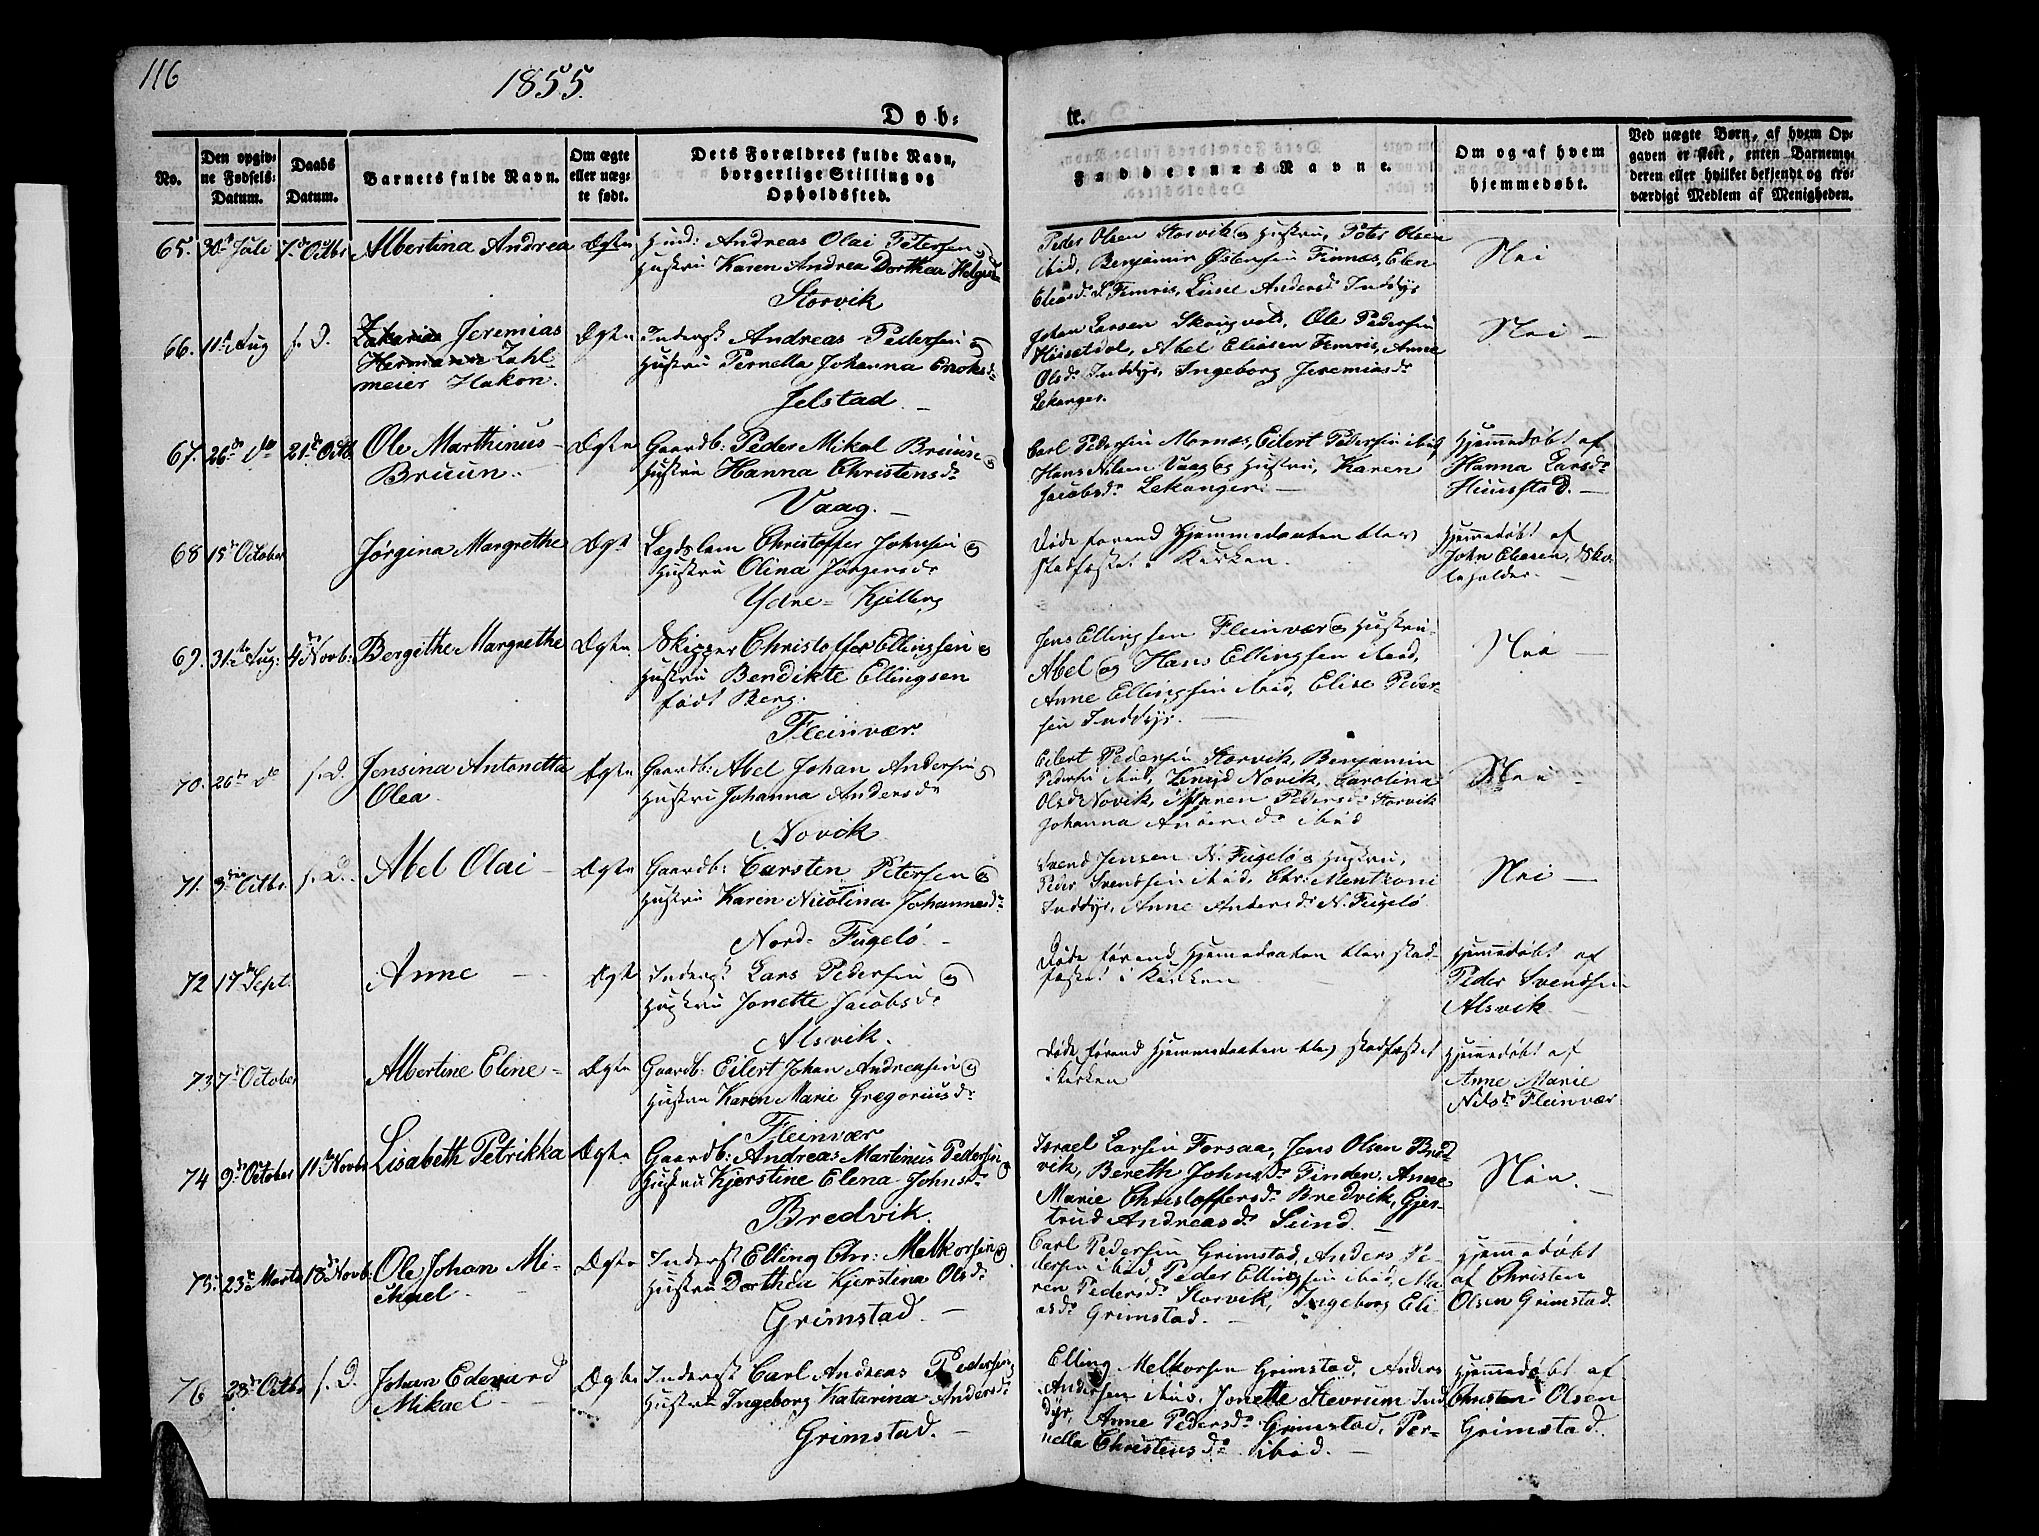 116
1855.
Døb-
te.
No.
Den opgiv-
ne Fødsels-
Datum.
Daabs
Datum.
Barnets fulde Navn.
Om ægte
eller uæg-
te født.
Dets Forældres fulde Navn,
borgerlige Stilling og
Opholdssted.
Faddernes Navne.
Om og af hvem
hjemmedøbt.
Ved uægte Børn, af hvem Op-
gaven er skeet, enten Barnemo-
deren eller hvilket bekjendt og tro-
værdigt Medlem af Menigheden.
65. 30te Juli 7de Octbr Albertina Andrea Ægte
Huusm: Andreas Olai Petersen og
Hustru Karen Andrea Dorthea Helges
Storvik
Peder Olsen Storvik og Hustru, Peter Olsen
ibid, Benjamin Finnes, Elen
Eliasd. Femris, Lise Andersd. Inddyr
Nei
66. 11te Aug s. D. Zakarias Jeremias
Hermann Zahl-
meier Hakon.
Ægte
Inderst Andreas Pedersen og
Hustru Pernella Johanna Enoksdr
Jelstad
Johan Larsen Skaugvold, Ole Pedersen
Abel Eliasen Femris, Anne
Olsdr Inddyr, Ingeborg Jeremiasdr
Lekanger.
Nei
67. 26de do 21de Octb Ole Marthinus
Bruun.
Ægte
Gaardb: Peder Mikal Bruun og
Hustru Hanna Christensdr
Vaag.
Carl Pedersen Mornes, Eilert Pedersen ibid
Hans Nilsen Vaag og Hustru, Karen
Jacobsdr Lekanger.
Hjemmedøbt af
Hanna Larsdr
Huusstad.
68 15de October Jørgina Margrethe Ægte
Lægdslem Christoffer Johnsen og
Hustru Olina Jørgensdr
Ydre- Kjelling
Døde førend Hjemmedaaben blev
stadfæstet i Kirken.
Hjemmedøbt af
John Eliasen, Sko-
leholder.
69. 31te Aug: 4de Novb: Bergithe Margrethe Ægte
Skipper Christoffer Ellingsen og
Hustru Bendikte Ellingsen
født Berg.
Fleinvær
Jens Ellingsen Fleinvær og Hustru.
Abel og Hans Ellingsen ibid,
Anne Ellingsen ibid, Elise Peder-
sen Inddyr.
Nei
70. 26de do s. D. Jensina Antonetta
Olea.
Ægte
Gaardb: Abel Johan Andersen og
Hustru Johanna Andersdr
Novik
Eilert Pedersen Storvik, Benjamin
Pedersen ibid, Novik, Carolina
Olsdr Novik, Maren Pedersdr Storvik
Johanna Andersdr ibid
Nei
71. 3die Octbr. s. D. Abel Olai Ægte
Gaardb: Carsten Petersen og
Hustru Karen Nicolina Johannesdr
Nord- Fugelø.
Svend Jensen N. Fugelø og Hustru,
Peder Svendsen ibid, Chr: Mentzoni
Inddyr, Anne Andersdr N. Fugelø
Nei
72 17de Sept. Anne Ægte
Inderst Lars Pedersen og
Hustru Jonette Jacobsdr
Alsvik.
Døde førend Hjemmedaaben blev stad-
fæstet i Kirken
Hjemmedøbt af
Peder Svendsen
Alsvik
73 7de October Albertine Eline Ægte
Gaardb: Eilert Johan Andreasen og
Hustru Karen Marie Gregoriusdr
Fleinvær
Døde førend Hjemmedaaben blev stadfæstet
i Kirken
Hjemmedøbt af
Anne Marie
Nilsdr Fleinvær
74 9de October 11te Novbr Lisabeth Petrikka Ægte
Gaardb: Andreas Martinus Pedersen og
Hustru Kjerstine Elena Johnsdr
Bredvik.
Israel Larsen Forsaa, Jens Olsen Bred-
vik, Bereth Johnsdr Finden, Anne
Marie Christoffersdr Bredvik, Gjer-
trud Andreasdr Sund.
Nei.
75. 23de Marts 18de Novb. Ole Johan Mi-
chael
Ægte
Inderst Elling Chr: Melkorsen og
Hustru Dorthea Kjerstina Olsdr
Grimstad.
Carl Pedersen Grimstad, Anders Pe-
dersen ibid, Peder Ellingsen ibid, Ma-
ren Pedersdr Storvik, Ingeborg Eli-
asdr Grimstad.
Hjemmedøbt
af Christen
Olsen Grimstad.
76 28de Octbr s. D. Johan Edevard
Mikael
Ægte
Inderst Carl Andreas Pedersen
Hustru Ingeborg Katarina Andersdr
Grimstad.
Elling Melkorsen Grimstad, Anders
Andersen ibid, Jonette Stevrum Ind
dyr, Anne Pedersdr Grimstad, Per-
nella Christensdr ibid.
Hjemmedøbt af
Christen Olsen
Grimstad.